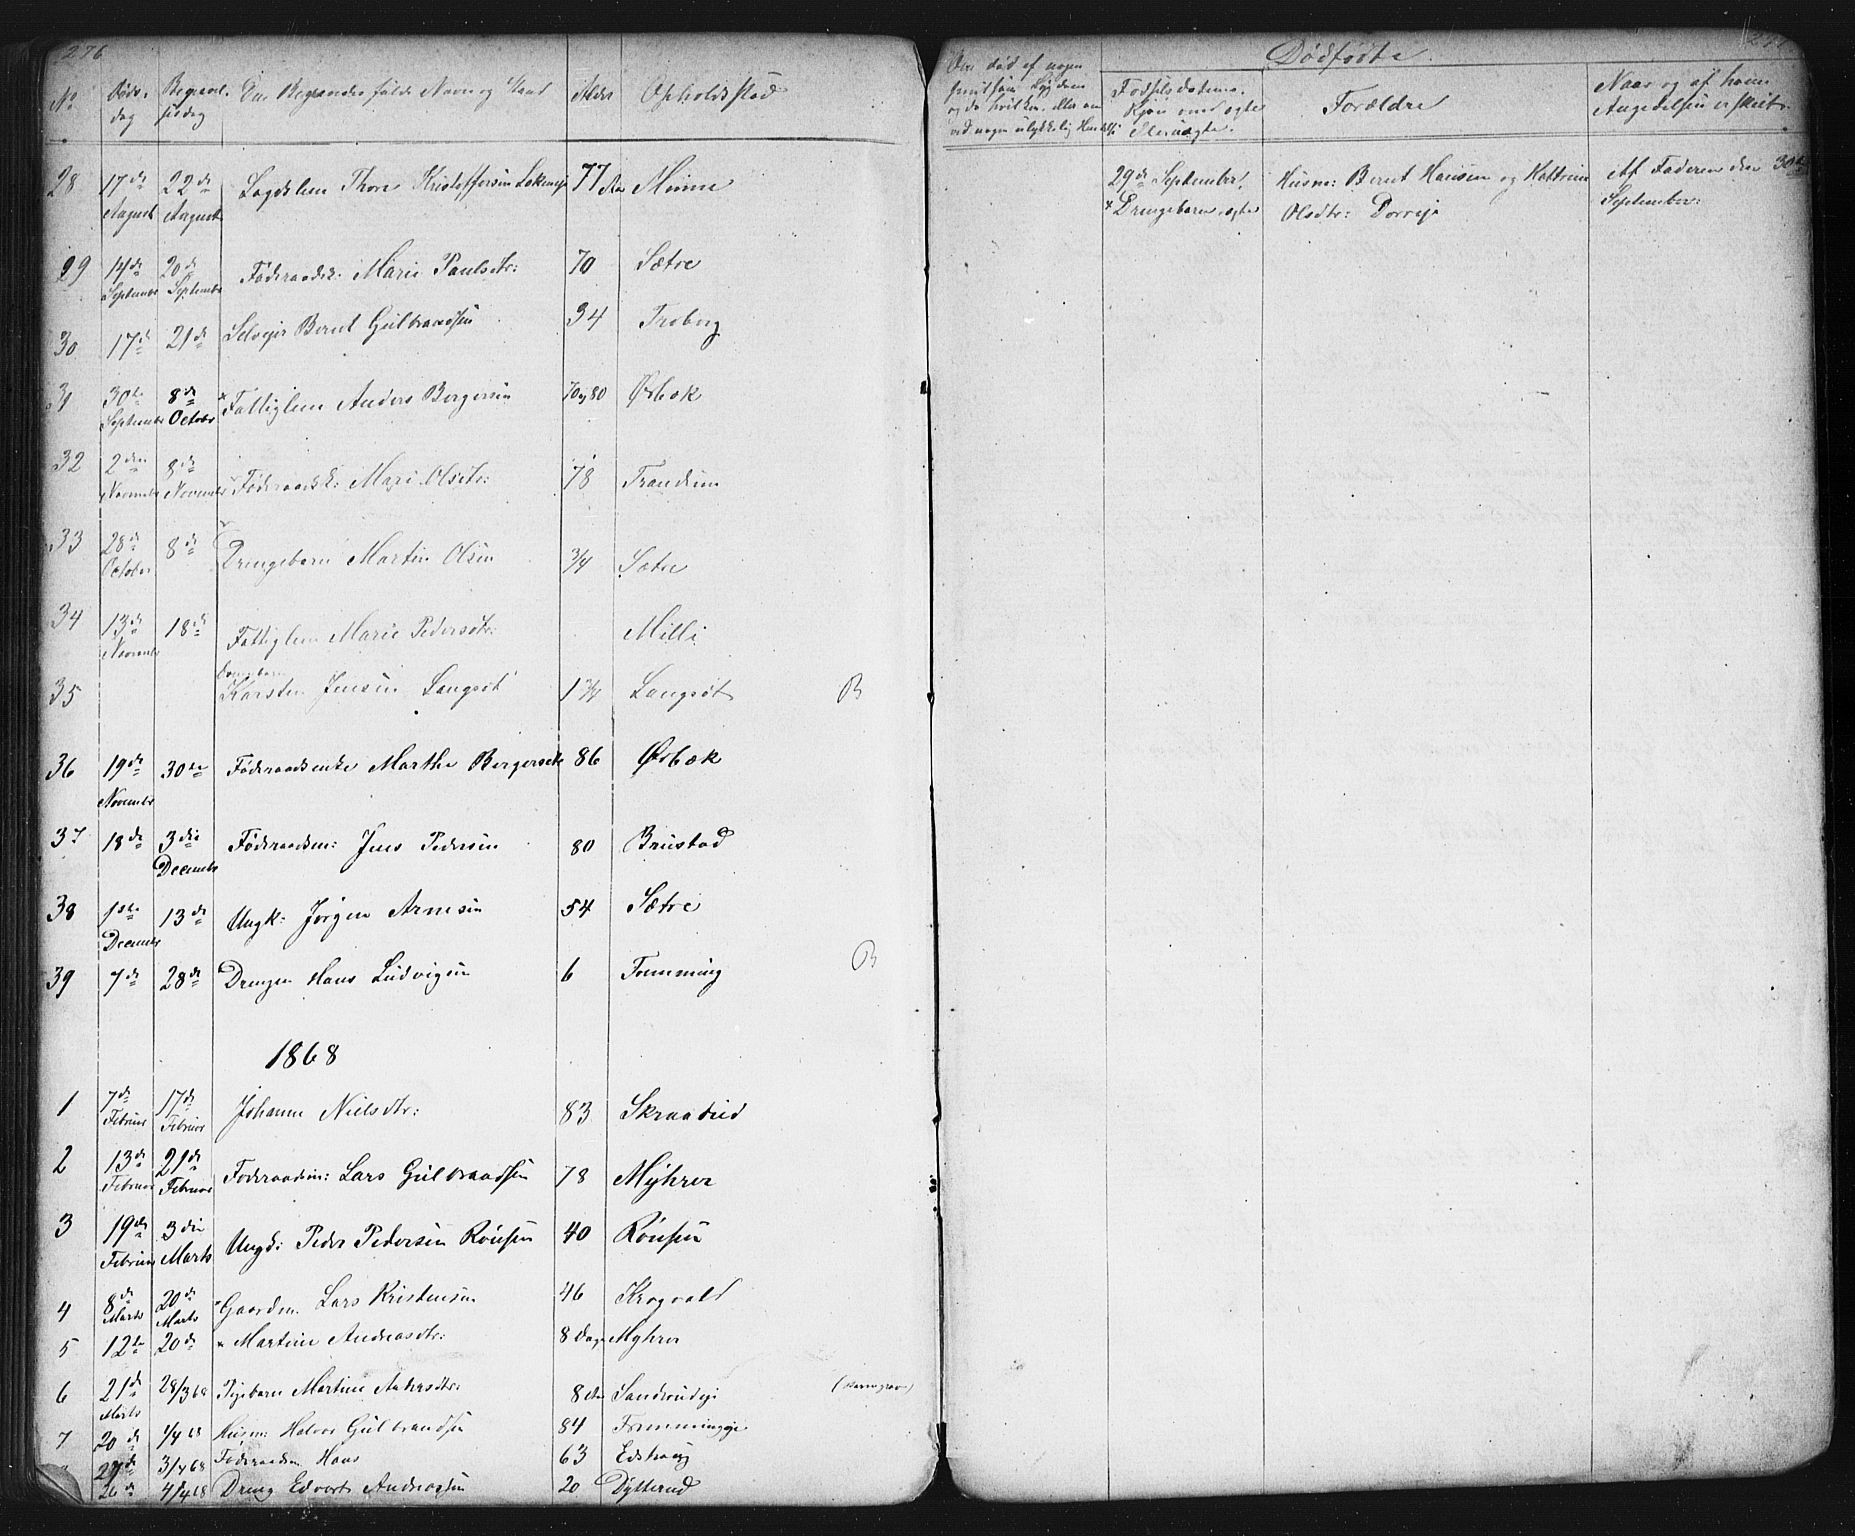 276
No Døds- Begravel- Den Begravedes fulde Navn og Stand Alder Opholdssted
dag sesdag
28 17de 22de Lægdslem Thore Kristoffersen 77 Aar Minne
August August
29 14de 20de Føderaadsk: Marie Paulsdtr: 70 Sætre
September September
30 17de 21de Selveier Bernt Gulbrandsen 34 Troberg
31 30te 8de Fattiglem Anders Bergersen 70 à 80 Ørbæk
September October
32 2den 8de Føderaadsk: Mari Olsdtr: 78 Trandum
November November
33 28de 8de Drengebarn Martin Olsen 3/4 Sætre
October
34 13de 18de Fattiglem Marie Pedersdtr: Milli
November
Drengebarn
35 Karsten Jensen Langset 1 3/4 Langset B
36 19de 30te Føderaadsenke Marthe Bergersdtr 86 Ørbæk
November
37 18de 3die Føderaadsm: Jens Pedersen 80 Brustad
December
38 1ste 13de Ungk: Jørgen Arnesen 54 Sætre
December
39 7de 28de Drengen Hans Ludvigsen 6 Fremming B
1868
1 7de 17de Johanne Nielsdtr: 83 Skraarud
Februar Februar
2 13de 21de Føderaadsm: Lars Gulbrandsen 78 Myhrer
Februar Februar
3 19de 3die Ungd: Peder Pedersen Rønsen 40 Rønsen
Februar Marts
4 8de 20de Gaardm Lars Kristensen 46 Krogvold
Marts Marts
5 12te 20de Martine Andreasdtr: 8 Dage Myhrer
6 21de 28/3 68 Pigebarn Martine 8 Aar (Barnegrav)
Marts
7 20de 1/4 68 Husm: Halvor Gulbrandsen 84 Fremmingeie
27de 3/4 68 Føderaadsm Hans 63
26de 4/4 68 Dreng Edvart Andreassen 20 Dytterud
277
Om død af nogen
smitsom Sygdom
og da hvilken, eller om
ved nogen ulykkelig Hændelse
Dødfødte.
Fødselsdatum, Forældre Naar og af hvem
Kjøn om ægte Angivelsen er skeet.
eller uægte.
29de September, Husm: Bernt Hansen og Kattrine Af Faderen den 30te
Drengebarn, ægte Olsdtr: Dorreje September.